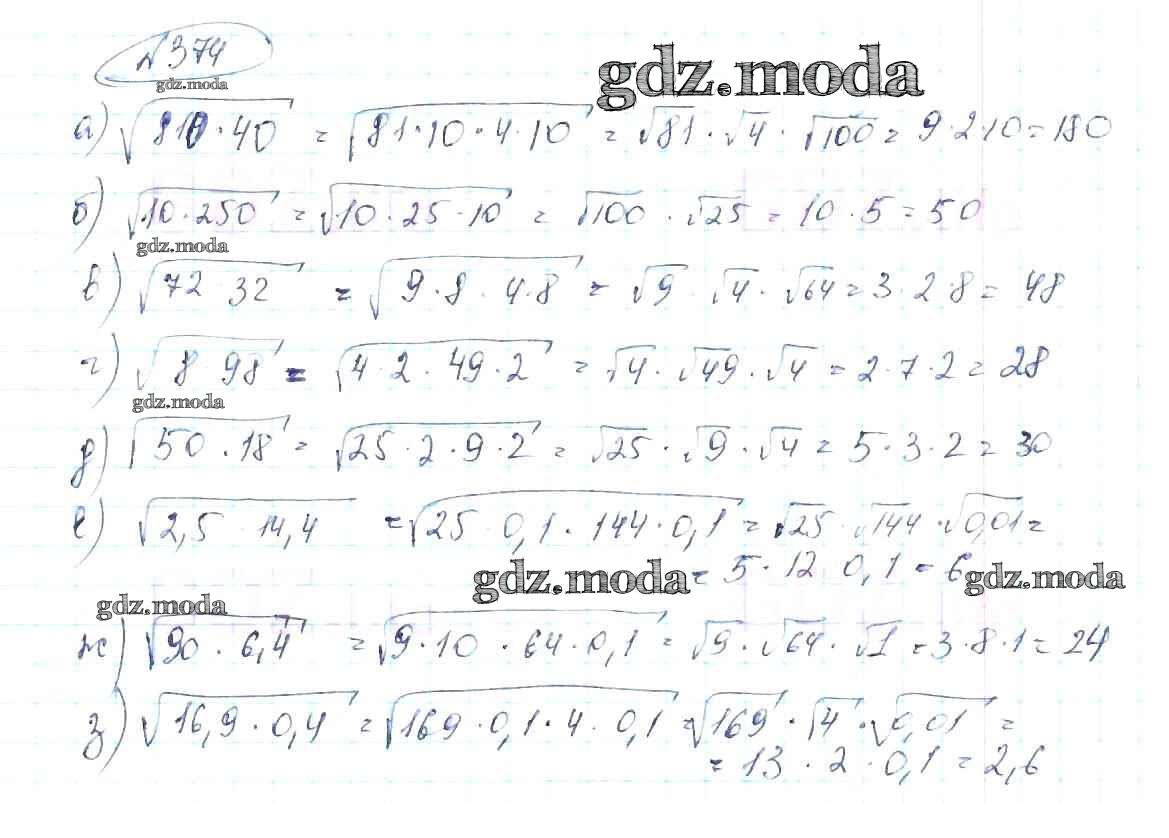 № 374
gdz.moda
gdz.moda
а) √810·40 = √81·10·4·10 = √81·√4·√100 = 9·2·10=180
б) √10·250 = √10·25·10 = √100·√25 = 10·5=50
gdz.moda
в) √72 32 = √9·8·4·8 = √9·√4·√64=3·2·8=48
г) √8 98 = √4·2·49·2 = √4·√49·√4=2·7·2=28
gdz.moda
д) √50·18 = √25·2·9·2 = √25·√9·√4=5·3·2=30
е) √2,5 14,4 =√25·0,1·144·0,1=√25·√144·√0,01=
= 5·12 0,1 = 6
gdz.moda gdz.moda
gdz.moda
ж) √90·6,4 =√9·10·64·0,1 = √9·√64·√1=3·8·1=24
з) √16,9·0,4 =√169·0,1·4·0,1=√169·√4·√0,01=
= 13·2·0,1=2,6